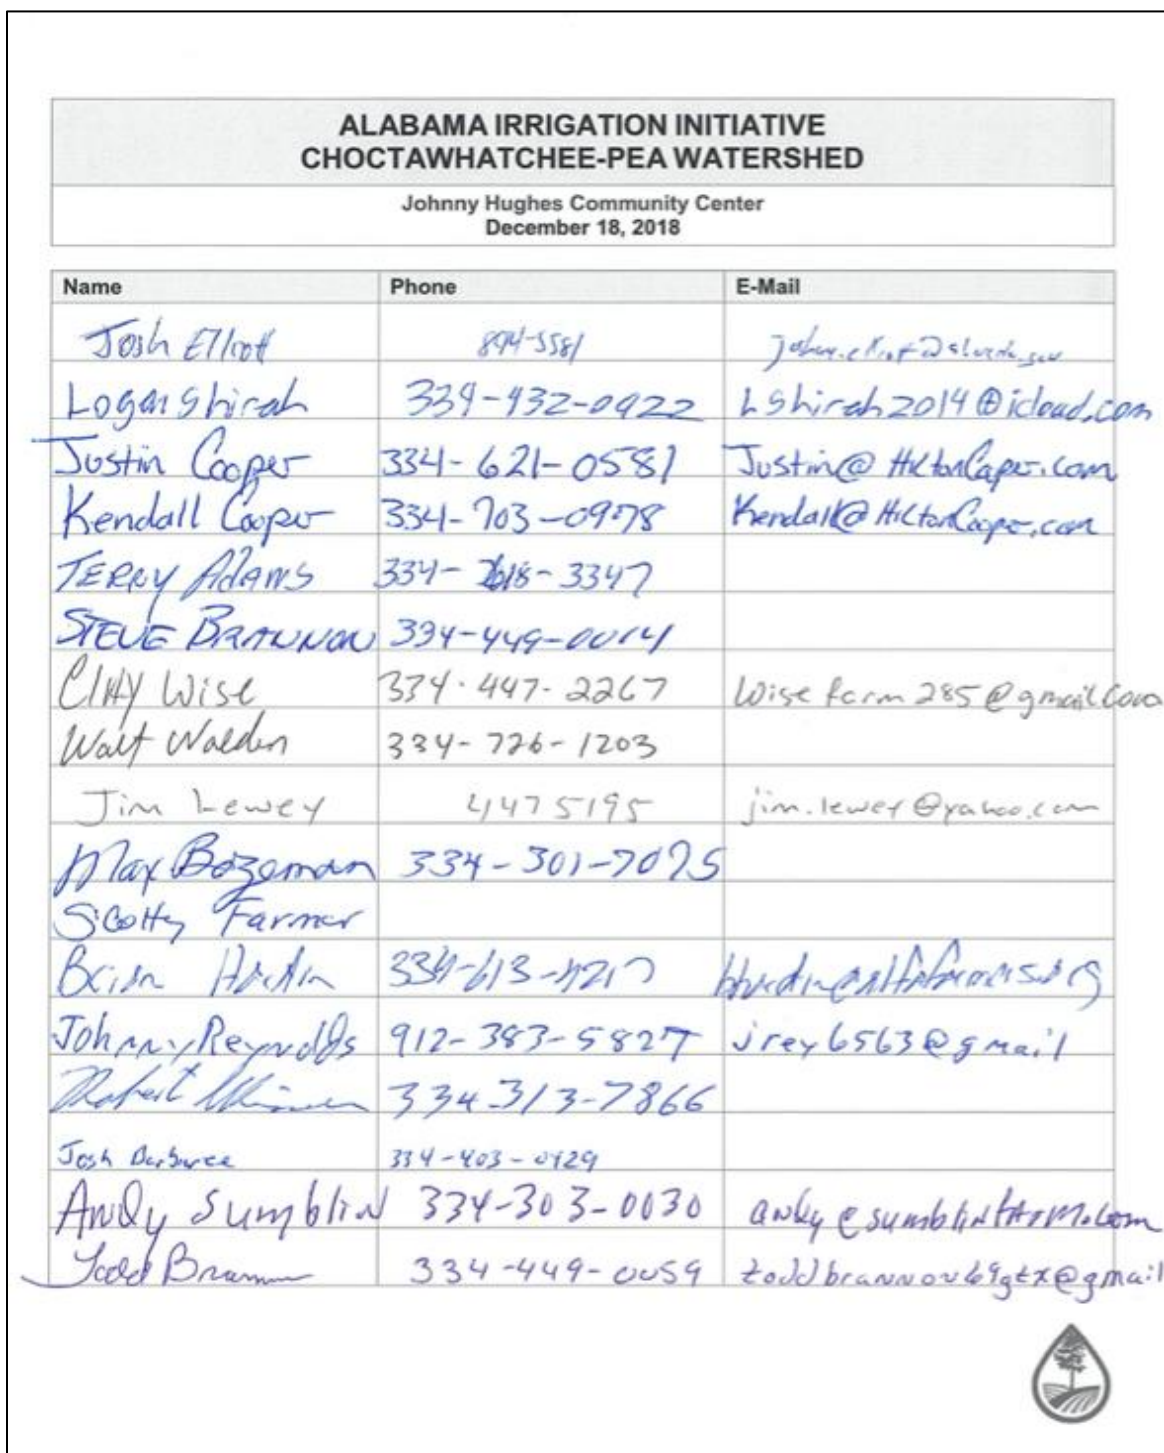 ALABAMA IRRIGATION INITIATIVE
CHOCTAWHATCHEE-PEA WATERSHED
Johnny Hughes Community Center
December 18, 2018
Name Phone E-Mail
Josh Elliott 894-5581
Logan Shirah 334-432-0922 LShirah2014@icloud.com
Justin Cooper 334-621-0581 Justin@HiltonCooper.com
Kendall Cooper 334-703-0978 Kendall@HiltonCooper.com
TERRY ADAMS 334- -3347
STEVE BRANNON 334-449-0014
Clay Wise 334-447-2267 Wisefarm285@gmail.com
Walt Walden 334-726-1203
Jim Lewey 4475195 jim.lewey@yahoo.com
Max Bozeman 334-301-7075
Scotty Farmer
Brian Hardin 334-613-4217
Johnny Reynolds 912-383-5827 jrey6563@gmail
Robert 334-313-7866
Josh 334-403-0429
Andy Sumblin 334-303-0030 andy@sumblinfarm.com
Todd Brannon 334-449-0059 toddbrannon69gtx@gmail